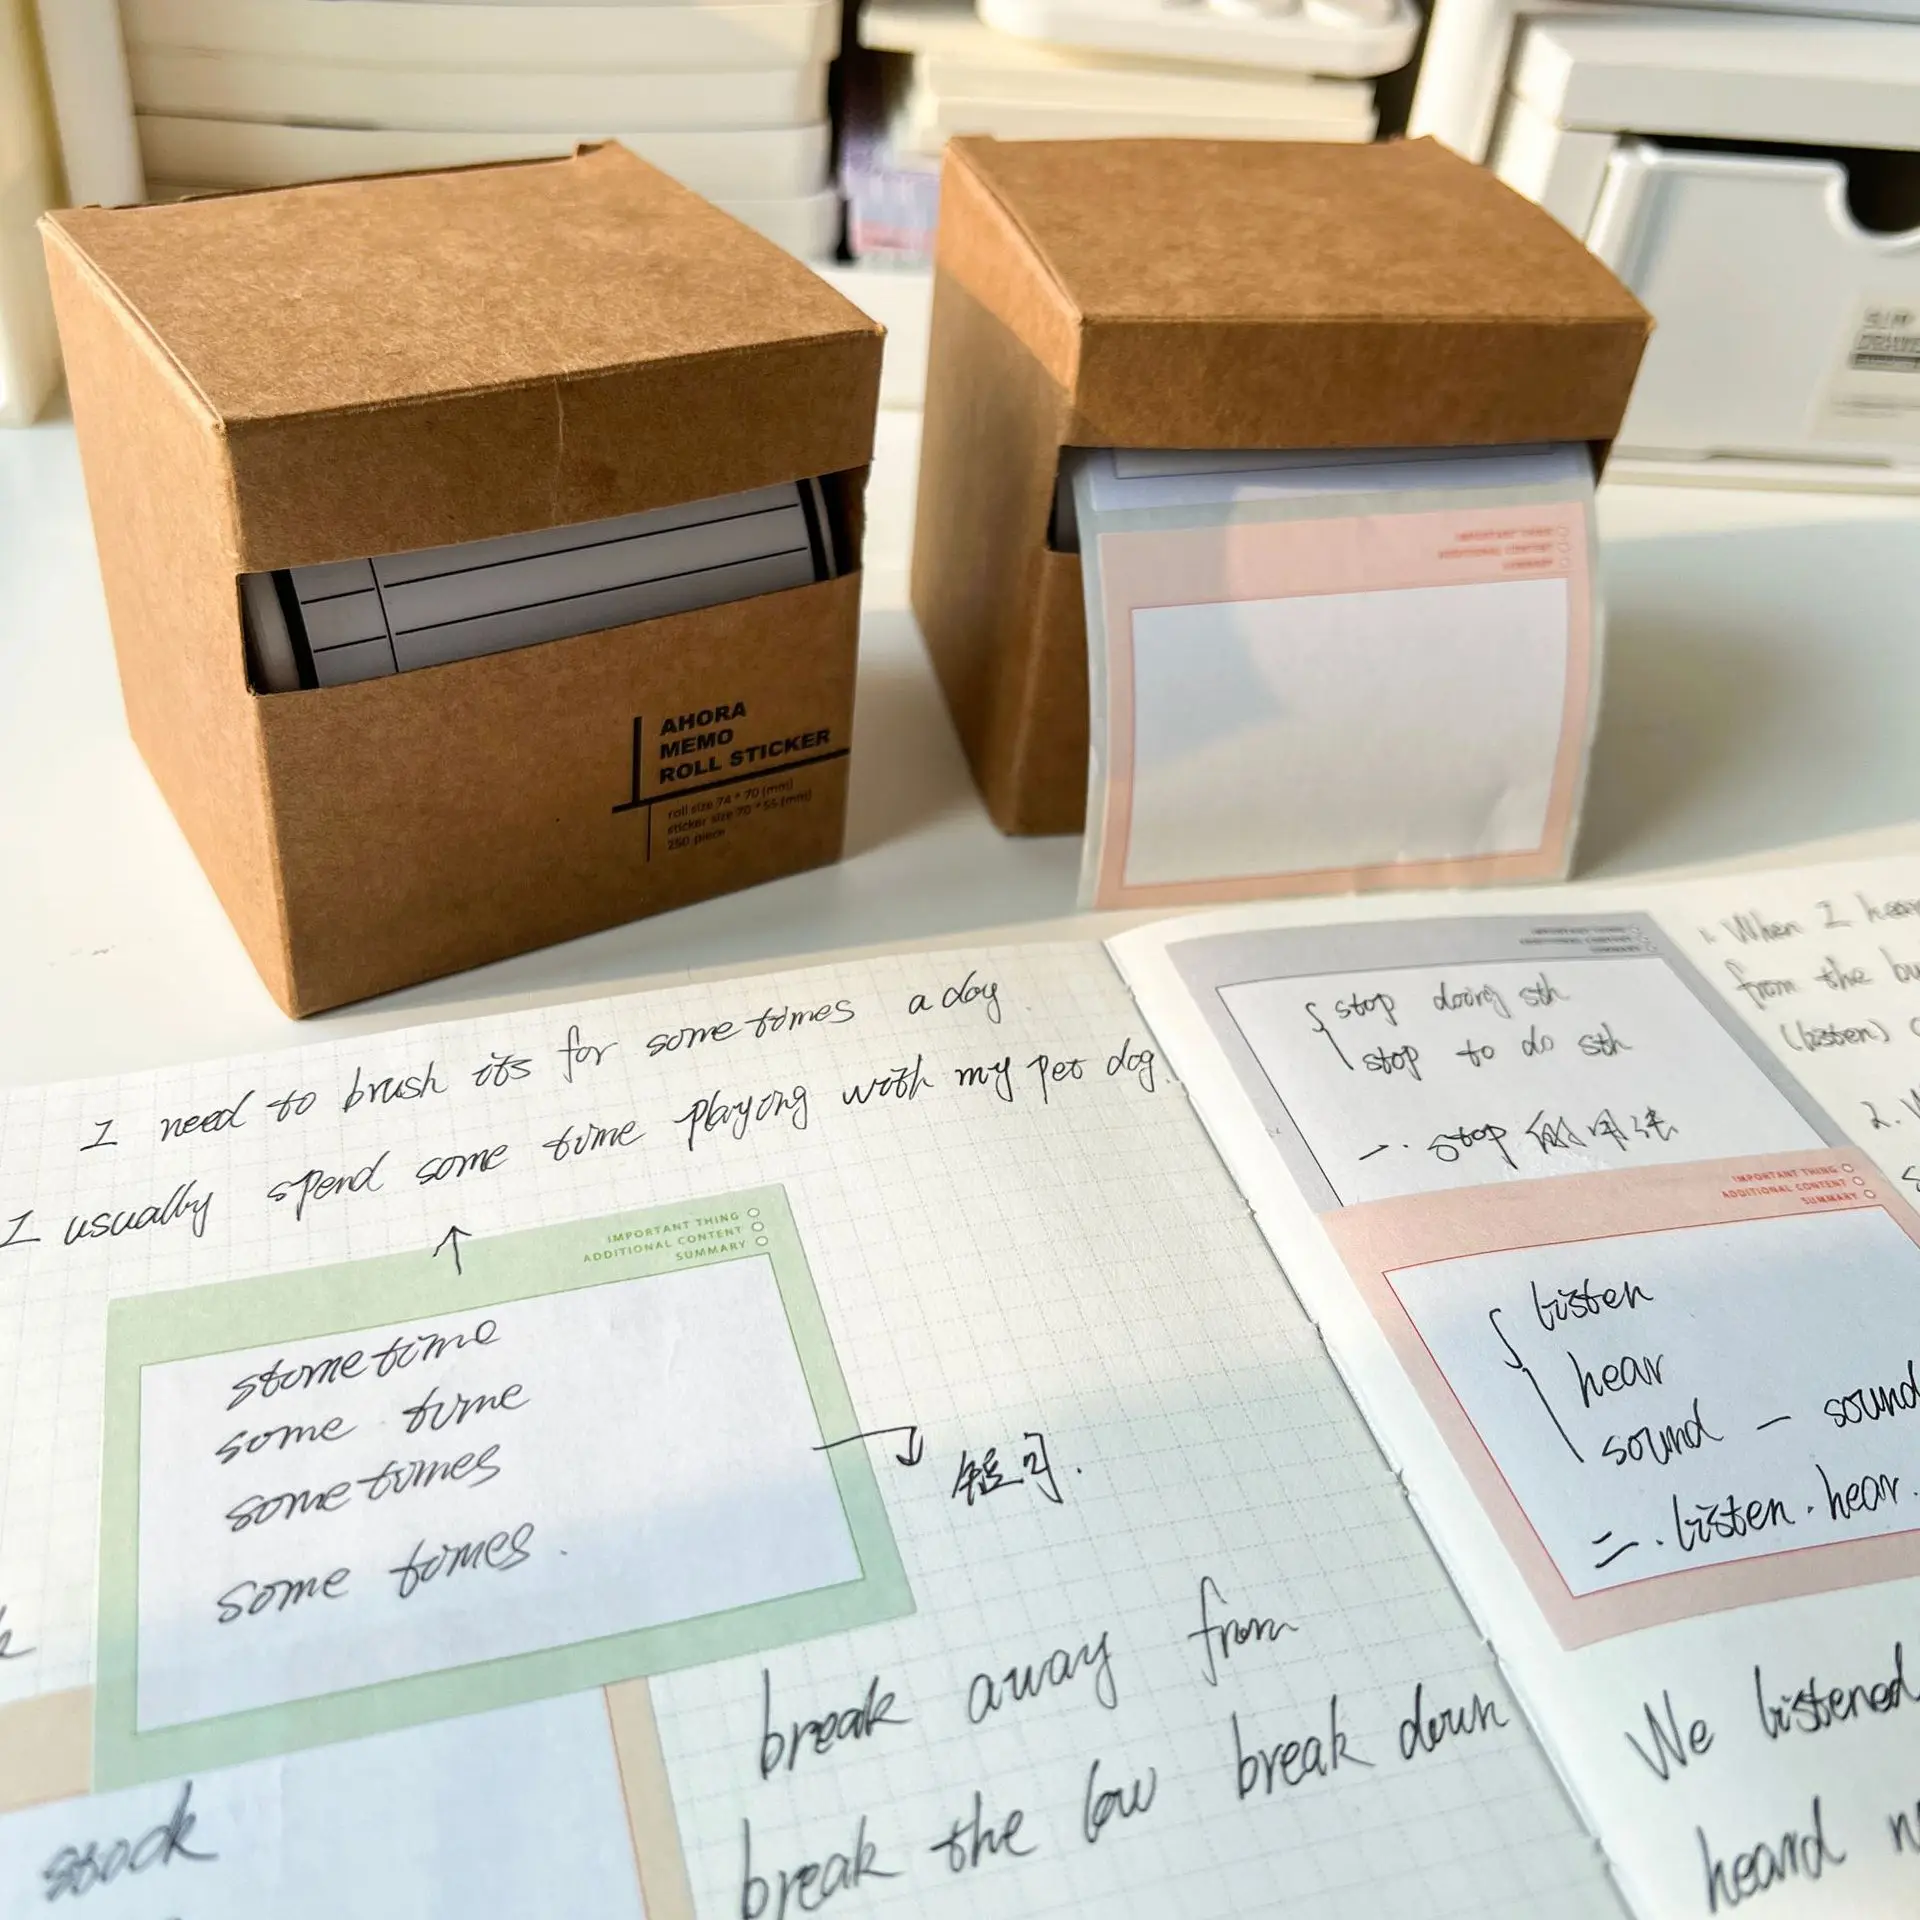 AHORA
MEMO
ROLL STICKER
roll size 74 * 70 (mm)
sticker size 70 * 55 (mm)
250 piece
IMPORTANT THING
ADDITIONAL CONTENT
SUMMARY
I need to brush its for sometimes a day.
I usually spend some time playing with my pet dog.
IMPORTANT THING
ADDITIONAL CONTENT
SUMMARY
stometime
some time
sometimes
some times.
短习.
break away from
break the low break down
stock
IMPORTANT THING
ADDITIONAL CONTENT
SUMMARY
stop doing sth
stop to do sth
一. stop 的用法
IMPORTANT THING
ADDITIONAL CONTENT
SUMMARY
listen
hear
sound — sound
二. listen. hear.
1. When I hear
from the bu
(listen)
2. W
We listened
heard n